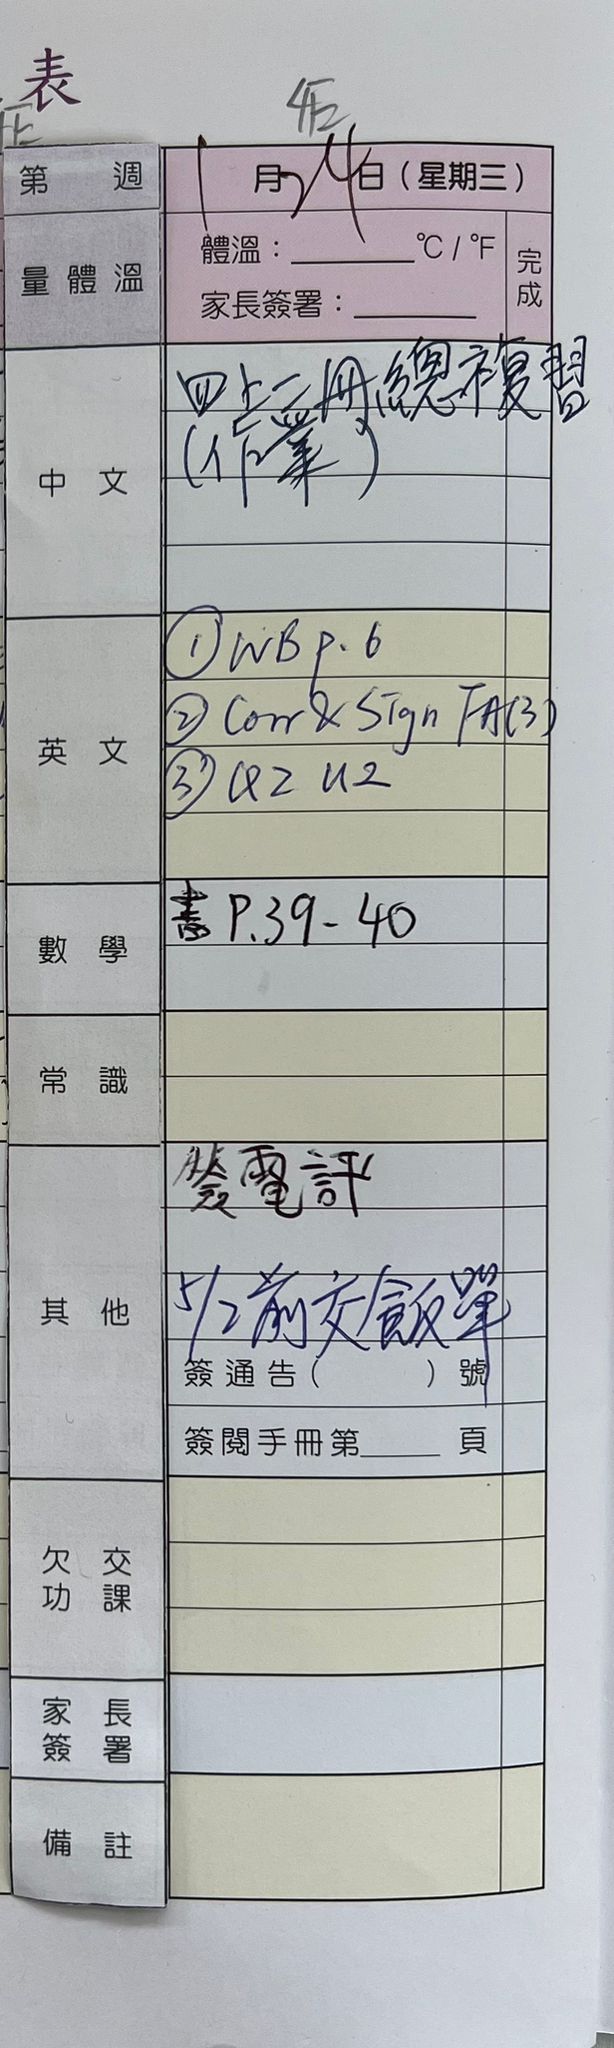 表
第 週
1月24日（星期三）
量體溫
體溫：______℃/℉
家長簽署：______
完成
中文
四上二冊總複習
(作業)
英文
① WB p.6
② Corr & Sign TA(3)
③ QZ U2
數學
書 P.39-40
常識
其他
簽電評
5/2前交飯單
簽通告（ ）號
簽閱手冊第____頁
欠交功課
家長簽署
備註